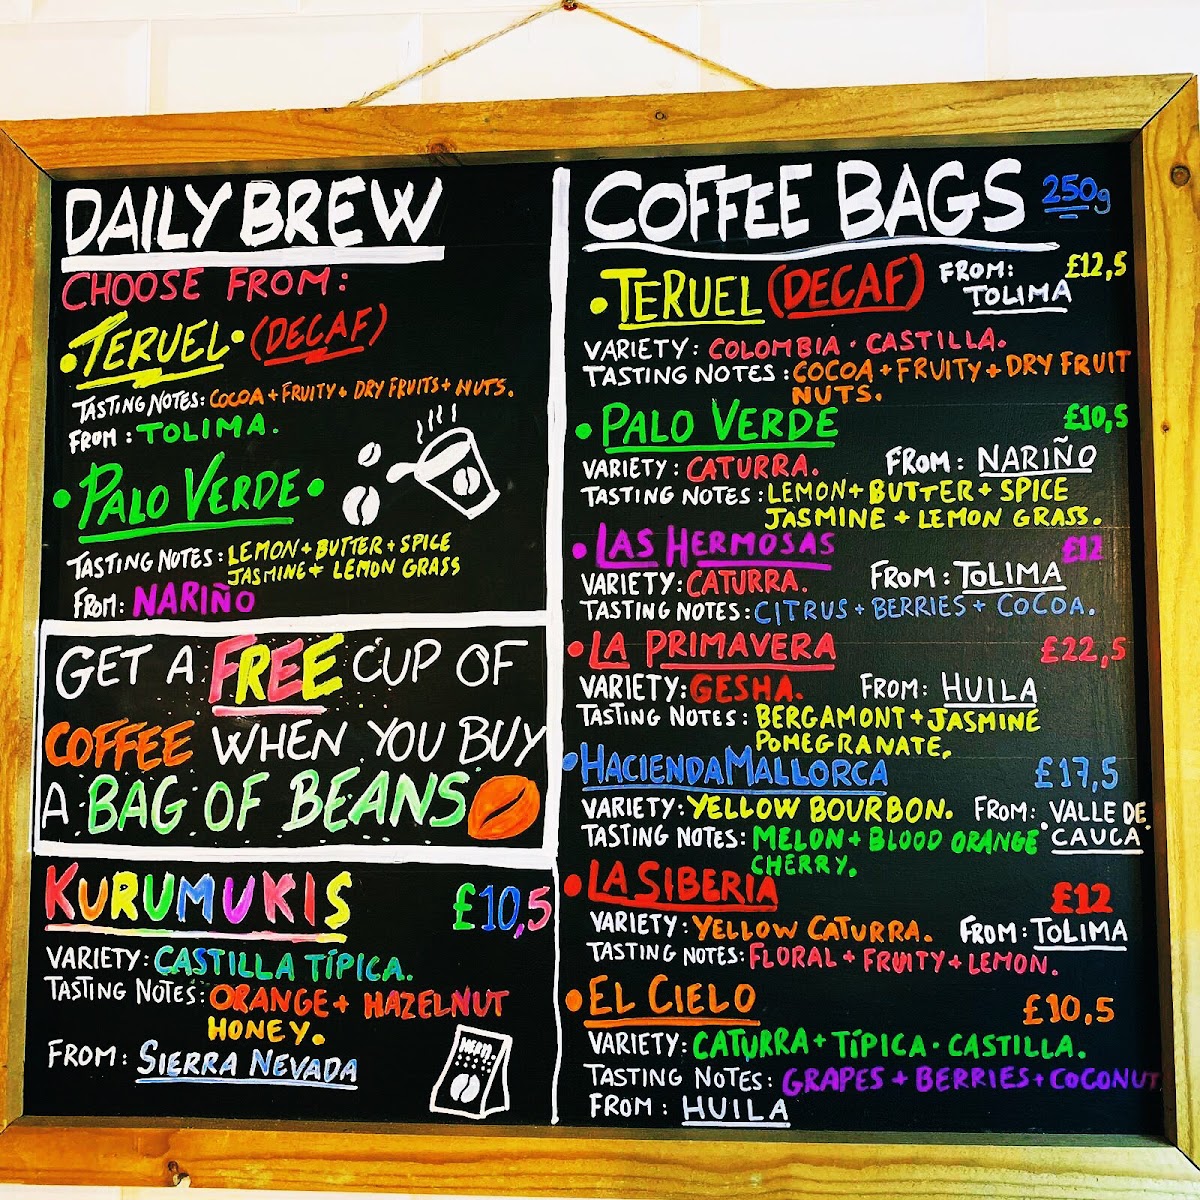 DAILY BREW
CHOOSE FROM:
• TERUEL • (DECAF)
TASTING NOTES: COCOA + FRUITY + DRY FRUITS + NUTS.
FROM: TOLIMA.
• PALO VERDE •
TASTING NOTES: LEMON + BUTTER + SPICE
JASMINE + LEMON GRASS
FROM: NARIÑO
GET A FREE CUP OF
COFFEE WHEN YOU BUY
A BAG OF BEANS
KURUMUKIS £10,5
VARIETY: CASTILLA TÍPICA.
TASTING NOTES: ORANGE + HAZELNUT
HONEY.
FROM: SIERRA NEVADA
COFFEE BAGS 250g
• TERUEL (DECAF) FROM: £12,5
TOLIMA
VARIETY: COLOMBIA · CASTILLA.
TASTING NOTES: COCOA + FRUITY + DRY FRUIT
NUTS.
• PALO VERDE £10,5
VARIETY: CATURRA. FROM: NARIÑO
TASTING NOTES: LEMON + BUTTER + SPICE
JASMINE + LEMON GRASS.
• LAS HERMOSAS £12
VARIETY: CATURRA. FROM: TOLIMA
TASTING NOTES: CITRUS + BERRIES + COCOA.
• LA PRIMAVERA £22,5
VARIETY: GESHA. FROM: HUILA
TASTING NOTES: BERGAMONT + JASMINE
POMEGRANATE.
• HACIENDA MALLORCA £17,5
VARIETY: YELLOW BOURBON. FROM: VALLE DE
TASTING NOTES: MELON + BLOOD ORANGE CAUCA
CHERRY.
• LA SIBERIA £12
VARIETY: YELLOW CATURRA. FROM: TOLIMA
TASTING NOTES: FLORAL + FRUITY + LEMON.
• EL CIELO £10,5
VARIETY: CATURRA + TÍPICA · CASTILLA.
TASTING NOTES: GRAPES + BERRIES + COCONUT
FROM: HUILA